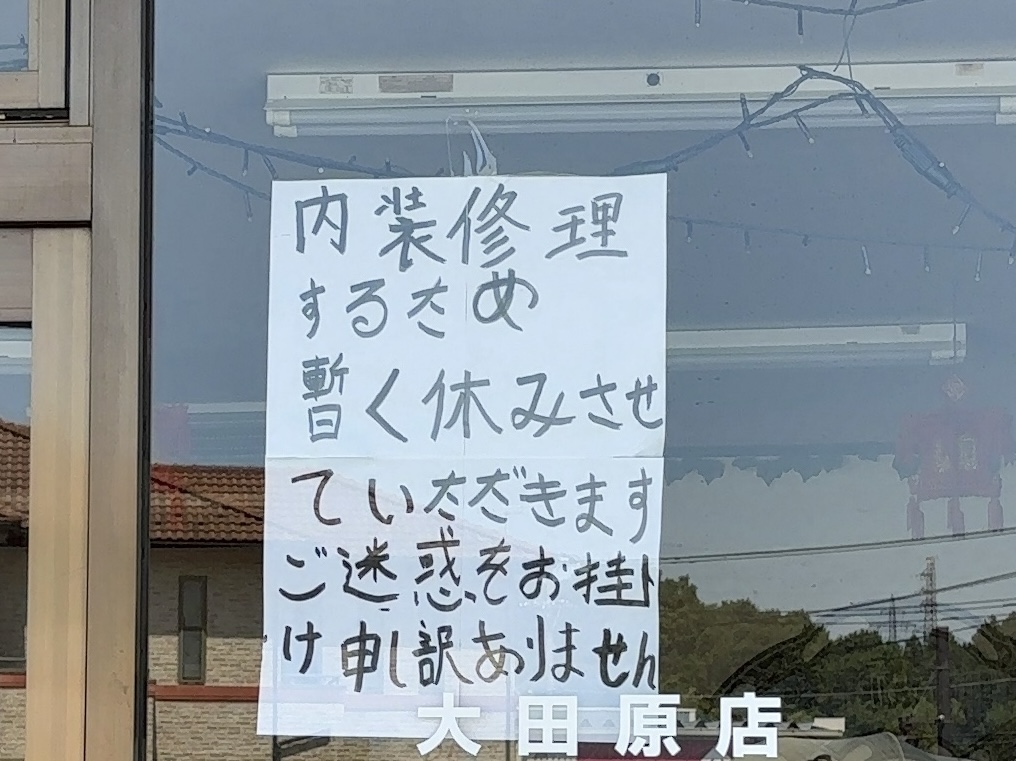 内装修理
するため
暫く休みさせ
ていただきます
ご迷惑をお掛
け申し訳ありません
大田原店